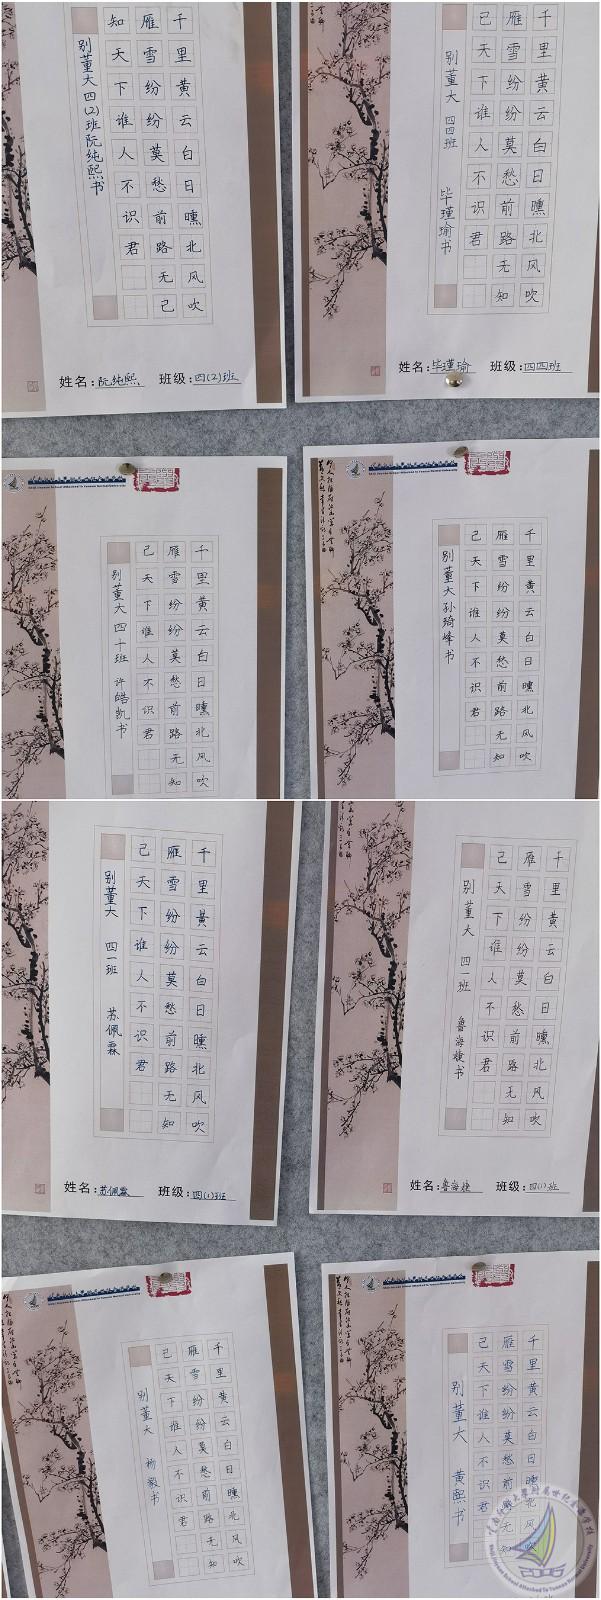 千里黄云白日曛北风吹
雁雪纷纷莫愁前路无己
知天下谁人不识君
别董大 四(2)班阮纯熙书
姓名:阮纯熙 班级:四(2)班
千里黄云白日曛北风吹
雁雪纷纷莫愁前路无知
己天下谁人不识君
别董大 四四班 毕瑾瑜书
姓名:毕瑾瑜 班级:四四班
千里黄云白日曛北风吹
雁雪纷纷莫愁前路无知
己天下谁人不识君
别董大 四十班 许皓凯书
千里黄云白日曛北风吹
雁雪纷纷莫愁前路无知
己天下谁人不识君
别董大 孙琦峰书
千里黄云白日曛北风吹
雁雪纷纷莫愁前路无知
己天下谁人不识君
别董大 四一班 苏佩霖
姓名:苏佩霖 班级:四(1)班
千里黄云白日曛北风吹
雁雪纷纷莫愁前路无知
己天下谁人不识君
别董大 四一班 鲁海婕书
姓名:鲁海婕 班级:四(1)班
千里黄云白日曛北风吹
雁雪纷纷莫愁前路无知
己天下谁人不识君
别董大 杨毅书
千里黄云白日曛北风吹
雁雪纷纷莫愁前路无知
己天下谁人不识君
别董大 黄熙书